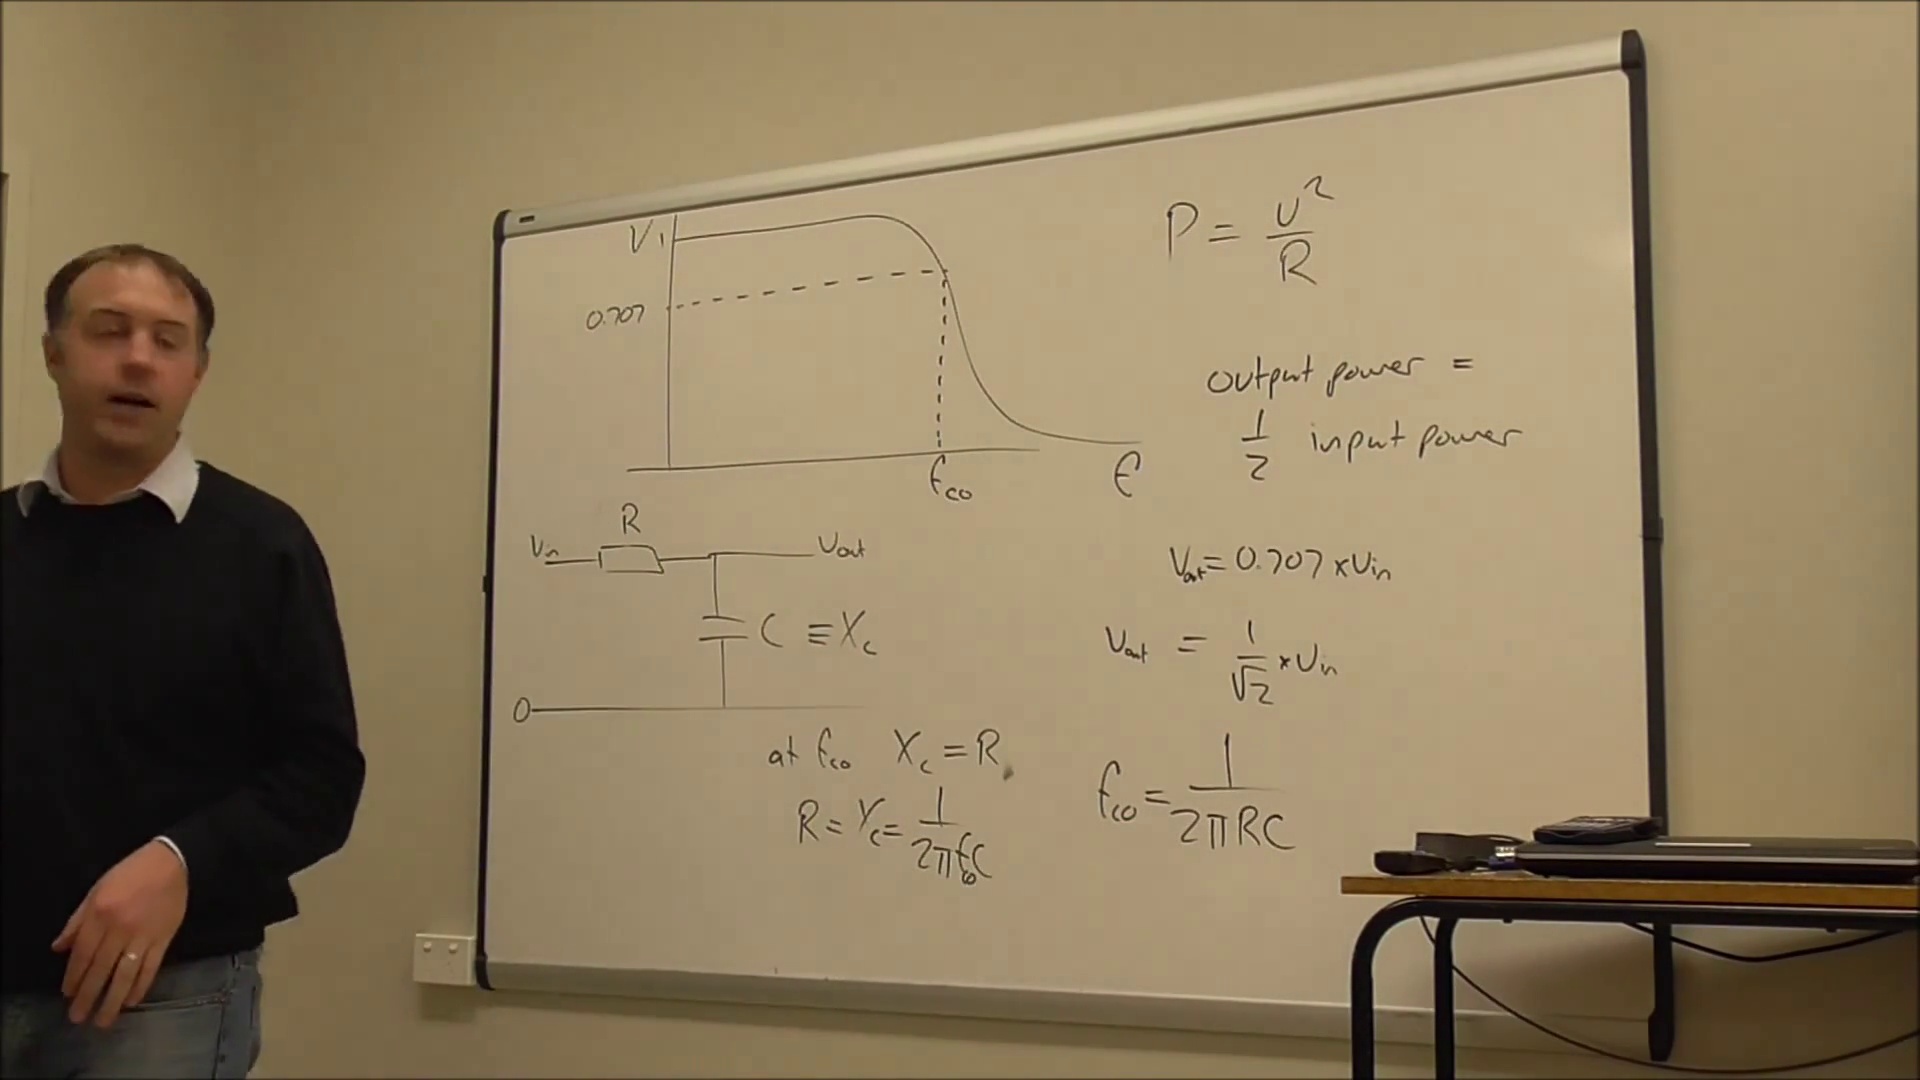 V 1
0.707
fco
f
R
Vin
Vout
C ≡ Xc
0
at fco Xc = R
R = Xc = 1/2πfcoC
P = V²/R
output power =
1/2 input power
Vout = 0.707 × Vin
Vout = 1/√2 × Vin
fco = 1/2πRC